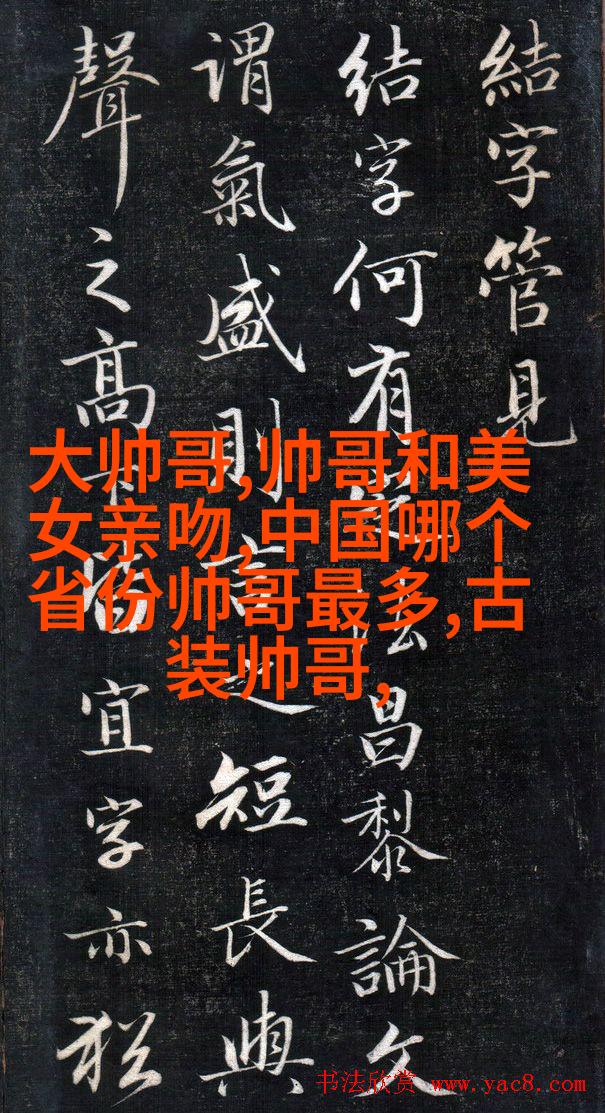 結字管見
结字何有法昌黎論文
谓氣盛則言之短長與
聲之髙下皆宜字亦猶
大帅哥,帅哥和美
女亲吻,中国哪个
省份帅哥最多,古
装帅哥,
书法欣赏 www.yac8.com